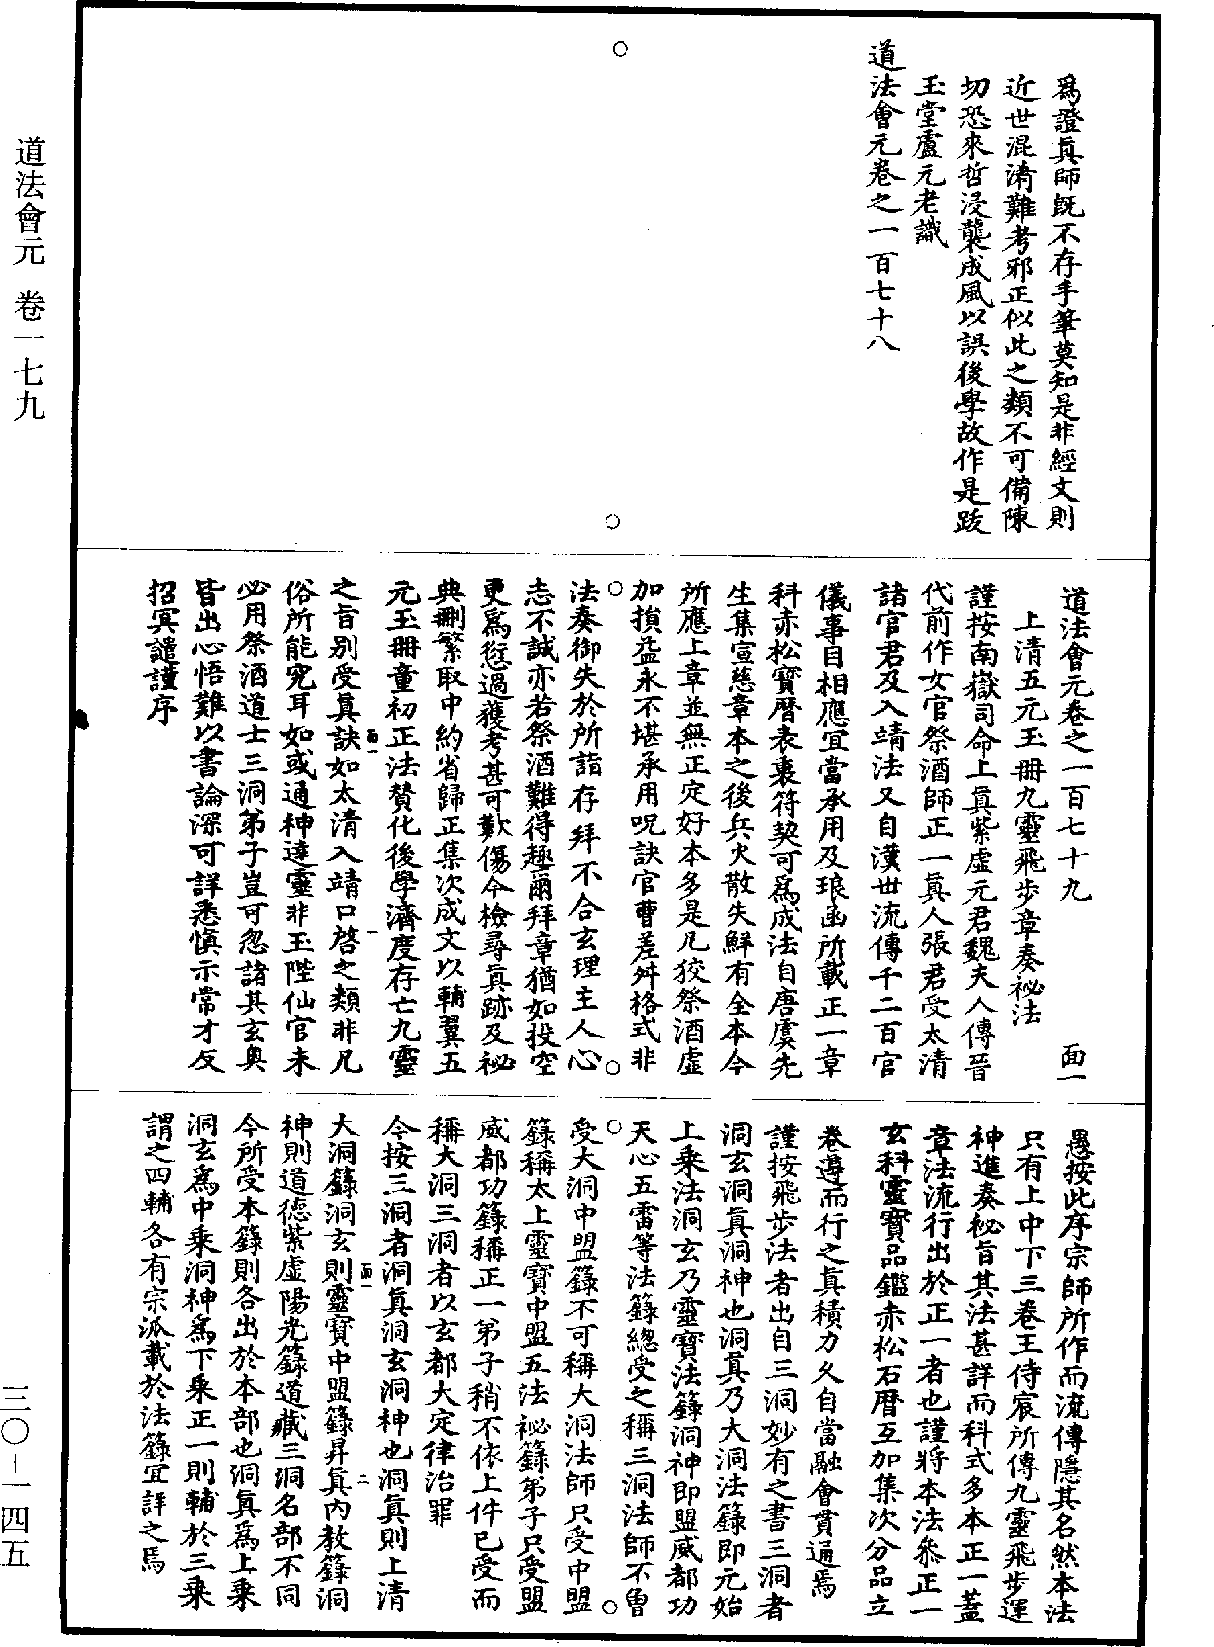 道法會元 卷一七九
三〇-一四五
爲證眞師旣不存手筆莫知是非經文則
近世混淆難考邪正似此之類不可備陳
切恐來哲浸襲成風以誤後學故作是跋
玉堂盧元老識
道法會元卷之一百七十八
道法會元卷之一百七十九 面一
上清五元玉冊九靈飛步章奏祕法
謹按南嶽司命上眞紫虛元君魏夫人傳晉
代前作女官祭酒師正一眞人張君受太清
諸官君及入靖法又自漢世流傳千二百官
儀事目相應宜當承用及琅函所載正一章
科赤松寶曆表裏符契可爲成法自唐虞先
生集宣慈章本之後兵火散失鮮有全本今
所應上章並無正定好本多是凡狡祭酒虛
加損益永不堪承用呪訣官曹差舛格式非
法奏御失於所詣存拜不合玄理主人心
志不誠亦若祭酒難得趣爾拜章猶如投空
更爲愆過獲考甚可歎傷今檢尋眞跡及祕
典刪繁取中約省歸正集次成文以輔翼五
元玉冊童初正法贊化後學濟度存亡九靈
面一 一
之旨別受眞訣如太清入靖口啓之類非凡
俗所能究耳如或通神達靈非玉陛仙官未
必用祭酒道士三洞弟子豈可忽諸其玄奥
皆出心悟難以書論深可詳悉愼示常才反
招冥譴謹序
愚按此序宗師所作而流傳隱其名然本法
只有上中下三卷王侍宸所傳九靈飛步運
神進奏祕旨其法甚詳而科式多本正一蓋
章法流行出於正一者也謹將本法叅正一
玄科靈寶品鑑赤松石曆互加集次分品立
卷遵而行之眞積力久自當融會貫通焉
謹按飛步法者出自三洞妙有之書三洞者
洞玄洞眞洞神也洞眞乃大洞法籙即元始
上乘法洞玄乃靈寶法籙洞神即盟威都功
天心五雷等法籙總受之稱三洞法師不曾
受大洞中盟籙不可稱大洞法師只受中盟
籙稱太上靈寶中盟五法祕籙弟子只受盟
威都功籙稱正一弟子稍不依上件已受而
稱大洞三洞者以玄都大定律治罪
今按三洞者洞眞洞玄洞神也洞眞則上清
面一 二
大洞籙洞玄則靈寶中盟籙昇眞內教籙洞
神則道德紫虛陽光籙道藏三洞名部不同
今所受本籙則各出於本部也洞眞爲上乘
洞玄爲中乘洞神爲下乘正一則輔於三乘
謂之四輔各有宗派載於法籙宜詳之焉